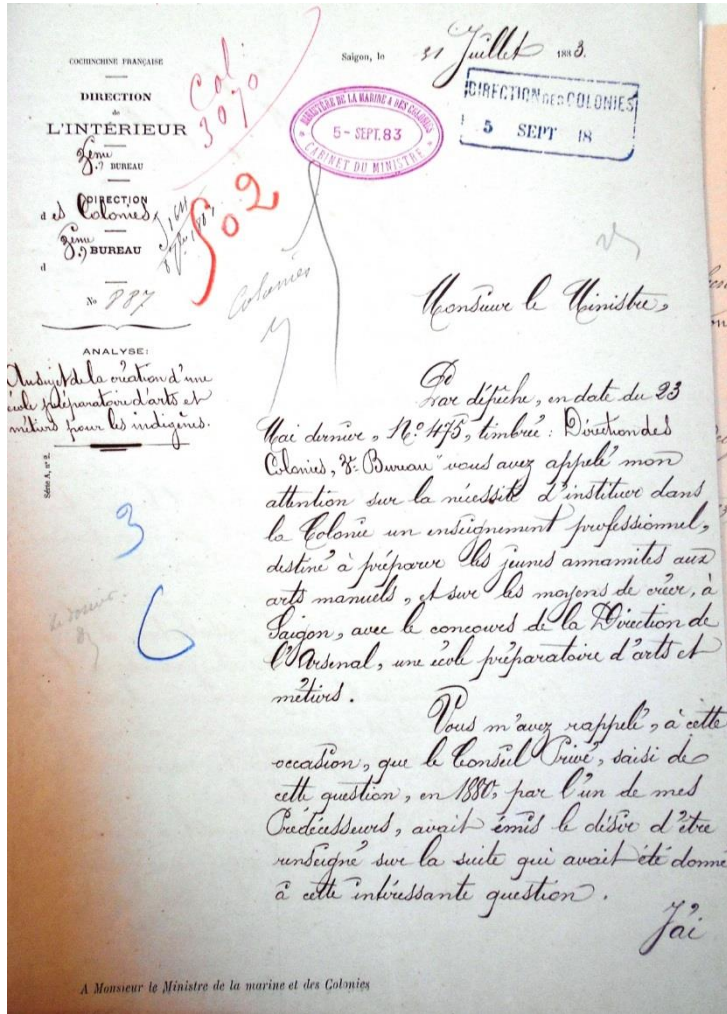 COCHINCHINE FRANÇAISE
DIRECTION
de
L'INTÉRIEUR
2ème BUREAU
DIRECTION
des Colonies
3ème BUREAU
No 887
ANALYSE:
Au sujet de la création d'une
école préparatoire d'arts et
métiers pour les indigènes.
Série A, nº 2.
Col.
3070
502
Colonies
3
6
Saigon, le 31 Juillet 1883.
MINISTÈRE DE LA MARINE & DES COLONIES
5 - SEPT. 83
CABINET DU MINISTRE
DIRECTION DES COLONIES
5 SEPT 18
Monsieur le Ministre,
Par dépêche, en date du 23
Mai dernier, Nº 475, timbrée: Direction des
Colonies, 3e Bureau" vous avez appelé mon
attention sur la nécessité d'instituer dans
la Colonie un enseignement professionnel,
destiné à préparer les jeunes annamites aux
arts manuels, et sur les moyens de créer, à
Saigon, avec le concours de la Direction de
l'Arsenal, une école préparatoire d'arts et
métiers.
Vous m'avez rappelé, à cette
occasion, que le Conseil Privé, saisi de
cette question, en 1880, par l'un de mes
Prédécesseurs, avait émis le désir d'être
renseigné sur la suite qui avait été donné
à cette intéressante question.
J'ai
A Monsieur le Ministre de la marine et des Colonies